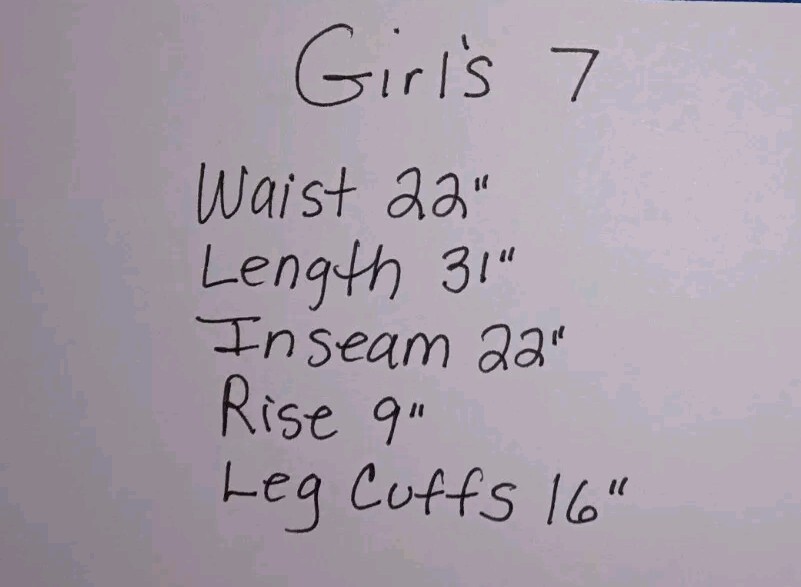 Girl's 7
Waist 22"
Length 31"
Inseam 22"
Rise 9"
Leg Cuffs 16"